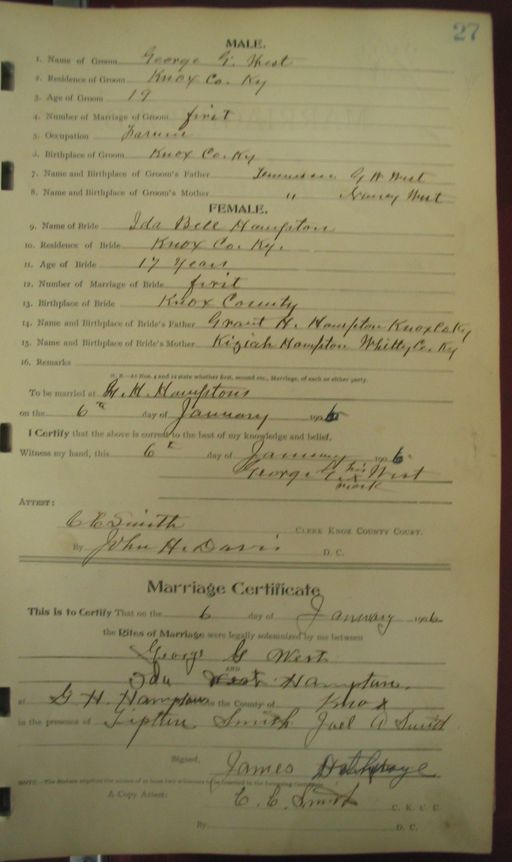 27
MALE.
1. Name of Groom George G. West
2. Residence of Groom Knox Co. Ky
3. Age of Groom 19
4. Number of Marriage of Groom first
5. Occupation Farmer
6. Birthplace of Groom Knox Co. Ky
7. Name and Birthplace of Groom's Father Tennessee G W West
8. Name and Birthplace of Groom's Mother " Nancy West
FEMALE.
9. Name of Bride Ida Bell Hampton
10. Residence of Bride Knox Co. Ky.
11. Age of Bride 17 Years
12. Number of Marriage of Bride first
13. Birthplace of Bride Knox County
14. Name and Birthplace of Bride's Father Grant H. Hampton Knox Co Ky
15. Name and Birthplace of Bride's Mother Kiziah Hampton Whitly Co. Ky
16. Remarks
N. B.—At Nos. 4 and 12 state whether first, second etc., Marriage, of each or either party.
To be married at G. H. Hamptons
on the 6th day of January 1906
I Certify that the above is correct to the best of my knowledge and belief.
Witness my hand, this 6th day of January 1906
George G. his x mark West
ATTEST:
C E Smith CLERK KNOX COUNTY COURT.
By John H. Davis D. C.
Marriage Certificate
This is to Certify That on the 6 day of January 1906
the Rites of Marriage were legally solemnized by me between
George G West
AND
Ida Hampton.
at G. H. Hamptons in the County of Knox
in the presence of Tipton Smith Joel A Smith
Signed, James
NOTE.—The Statute requires the names of at least two witnesses to be inserted in the foregoing Certificate.
A Copy Attest: C. E. Smith C. K. C. C.
By D. C.